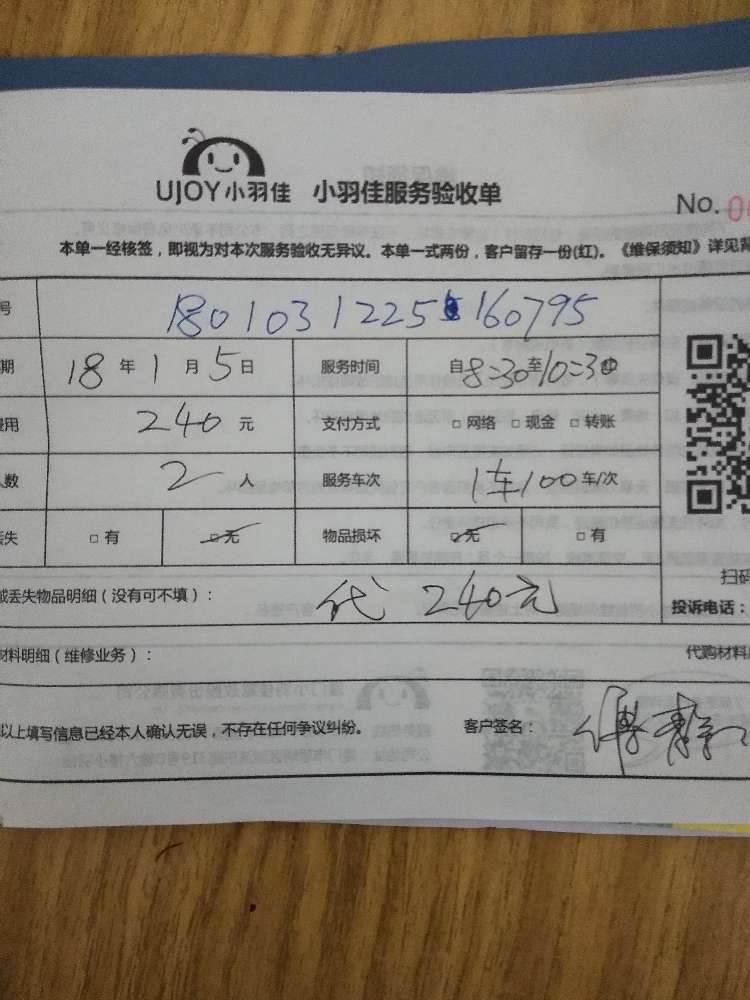 UJOY小羽佳 小羽佳服务验收单
No.
本单一经核签，即视为对本次服务验收无异议。本单一式两份，客户留存一份(红)。《维保须知》详见背
号 1801031225 160795
期 18年1月5日 服务时间 自8:30至10:30
费用 240元 支付方式 □网络 □现金 □转账
人数 2人 服务车次 1车100车/次
丢失 □有 □无 物品损坏 □无 □有
或丢失物品明细（没有可不填）： 代 240元
扫码
投诉电话：
材料明细（维修业务）： 代购材料
以上填写信息已经本人确认无误，不存在任何争议纠纷。 客户签名：